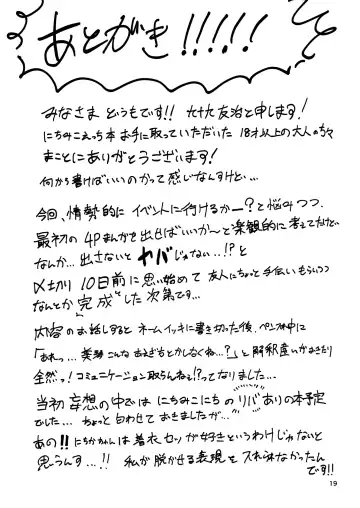 あとがき!!!!!
みなさま どうもです!! 九十九 友治と申します!
にちみこえっち本 お手に取っていただいた 18才以上の大人の方々
まことにありがとうございます!
何から書けばいいのかって感じなんすけど…
今回、情勢的に イベントに行けるかー?と悩みつつ、
最初の 4Pまんがを出せばいいか〜と楽観的に考えてたけど
なんか…出さないと ヤバじゃない…!?と
〆切り 10日前に思い始めて 友人にちょっと手伝いもらいつつ
なんとか"完成"した次第です…
内容のお話しすると ネームイッキに書き切った後、ペン入れ中に
「あれっ…美琴こんな あえぎもとかしなくね…?」と解釈違いがおきたり
全然っ!コミュニケーション取らんねえ!?ってなりました…
当初 妄想の中では にちみこにちの リバありの本予定
でした…ちょっと 匂わせて おきましたが…
あの!! にちかちゃんは 着衣セッが好きというわけじゃないと
思うんす…!! 私が 脱がせる表現を 入れられなかったん
です!!
19